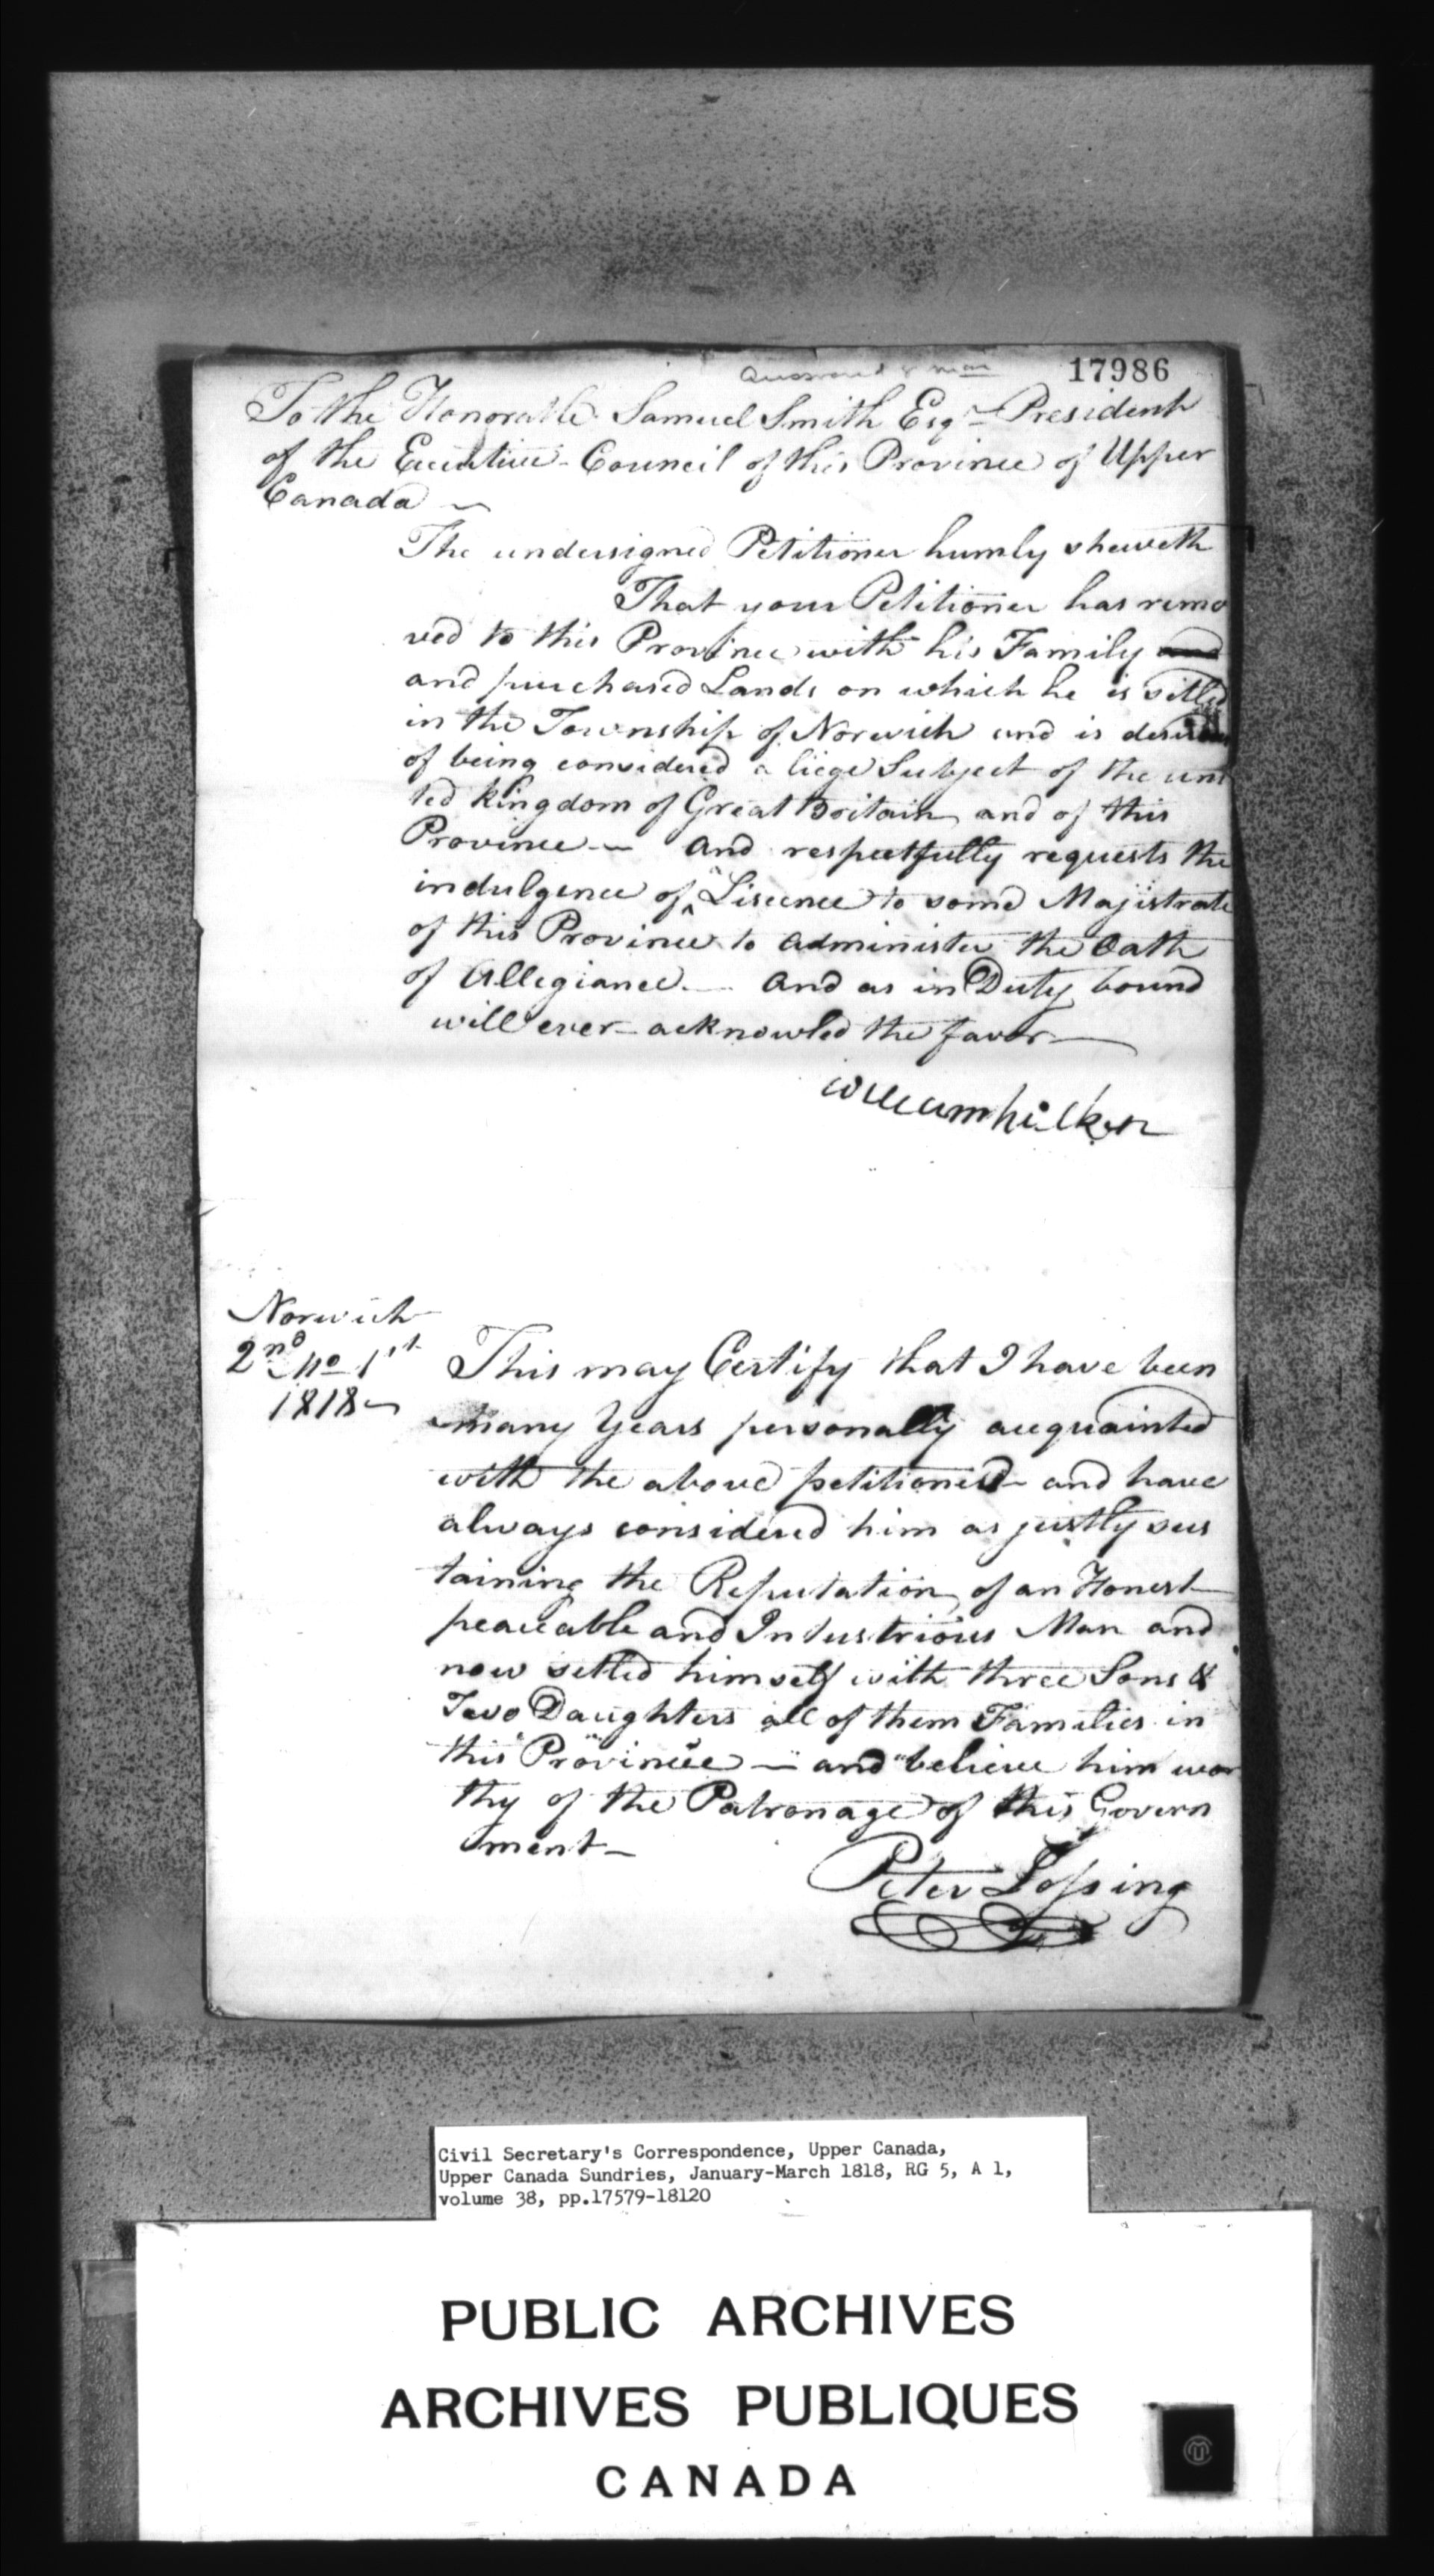 Answered 8 Mar
17986
To the Honorable Samuel Smith Esqr President
of the Executive Council of this Province of Upper
Canada ~
The undersigned Petitioner humly sheweth
That your Petitioner has remo
ved to this Province with his Family and
and purchased Lands on which he is setled
in the Township of Norwich and is desirous
of being considered a liege Subject of the uni
ted Kingdom of Great Britain and of this
Province — and respectfully requests the
indulgence of a Liscence to some Majistrate
of this Province to administer the Oath
of Allegiance — and as in Duty bound
will ever acknowled the favor —
William hilker
Norwich
2nd mo 1st
1818 ~
This may Certify that I have been
many Years personally acequainted
with the above petitioner — and have
always considered him as justly sus
taining the Reputation of an Honest
peaceable and Industrious Man and
now setled himself with three Sons &
Two Daughters all of them Families in
this Province — and believe him wor
thy of the Patronage of this Govern
ment —
Peter Lossing
Civil Secretary's Correspondence, Upper Canada,
Upper Canada Sundries, January-March 1818, RG 5, A 1,
volume 38, pp.17579-18120
PUBLIC ARCHIVES
ARCHIVES PUBLIQUES
CANADA